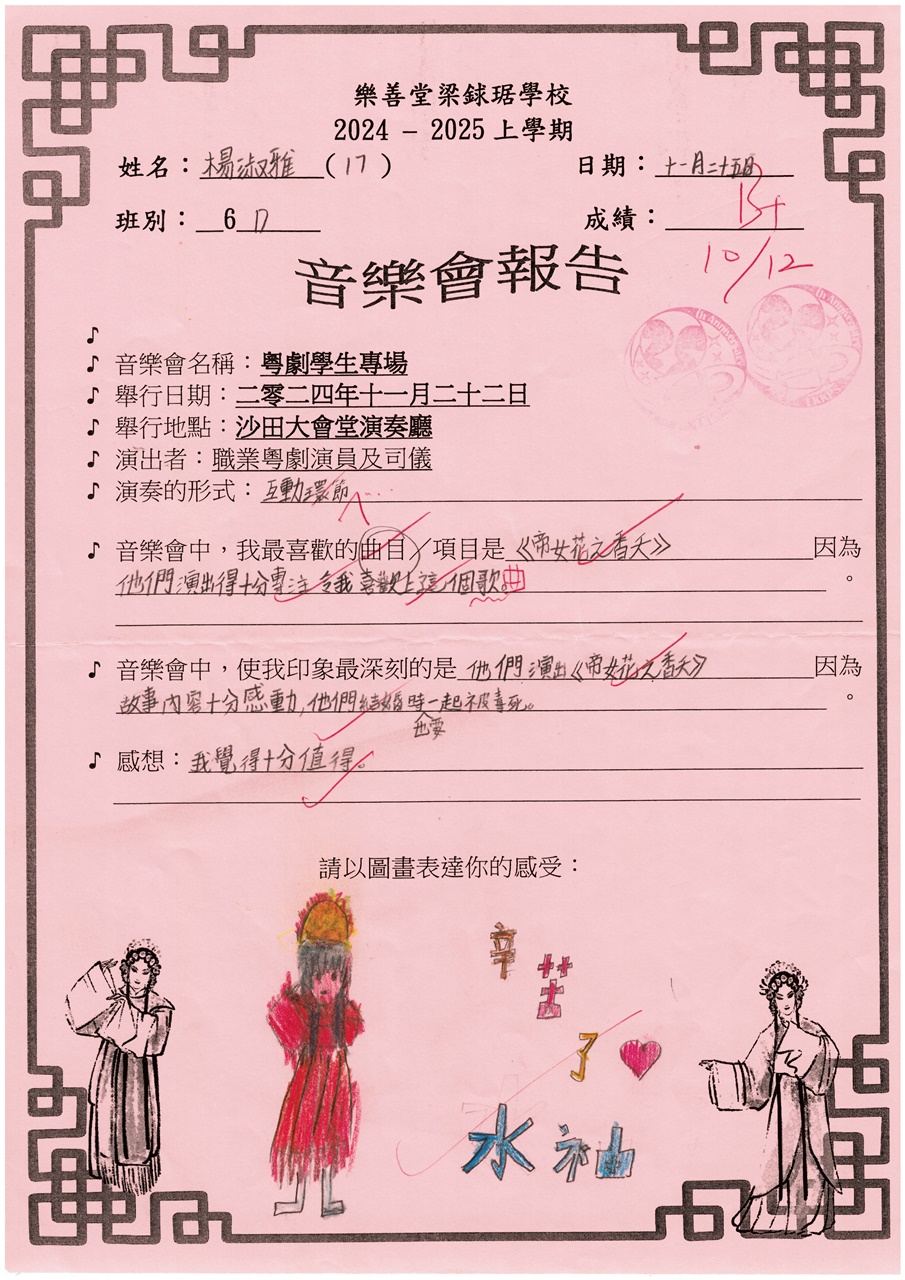 樂善堂梁銶琚學校
2024 – 2025 上學期
姓名：楊淑雅 (17) 日期：十一月二十五日
班別：6D 成績：B+
10/12
音樂會報告
♪
♪ 音樂會名稱：粵劇學生專場
♪ 舉行日期：二零二四年十一月二十二日
♪ 舉行地點：沙田大會堂演奏廳
♪ 演出者：職業粵劇演員及司儀
♪ 演奏的形式：互動環節
♪ 音樂會中，我最喜歡的曲目／項目是《帝女花之香夭》因為
他們演出得十分專注令我喜歡上了這個歌曲。
♪ 音樂會中，使我印象最深刻的是 他們演出《帝女花之香夭》因為
故事內容十分感動，他們結婚時也要一起被毒死。
♪ 感想：我覺得十分值得。
請以圖畫表達你的感受：
辛
苦
了
水袖